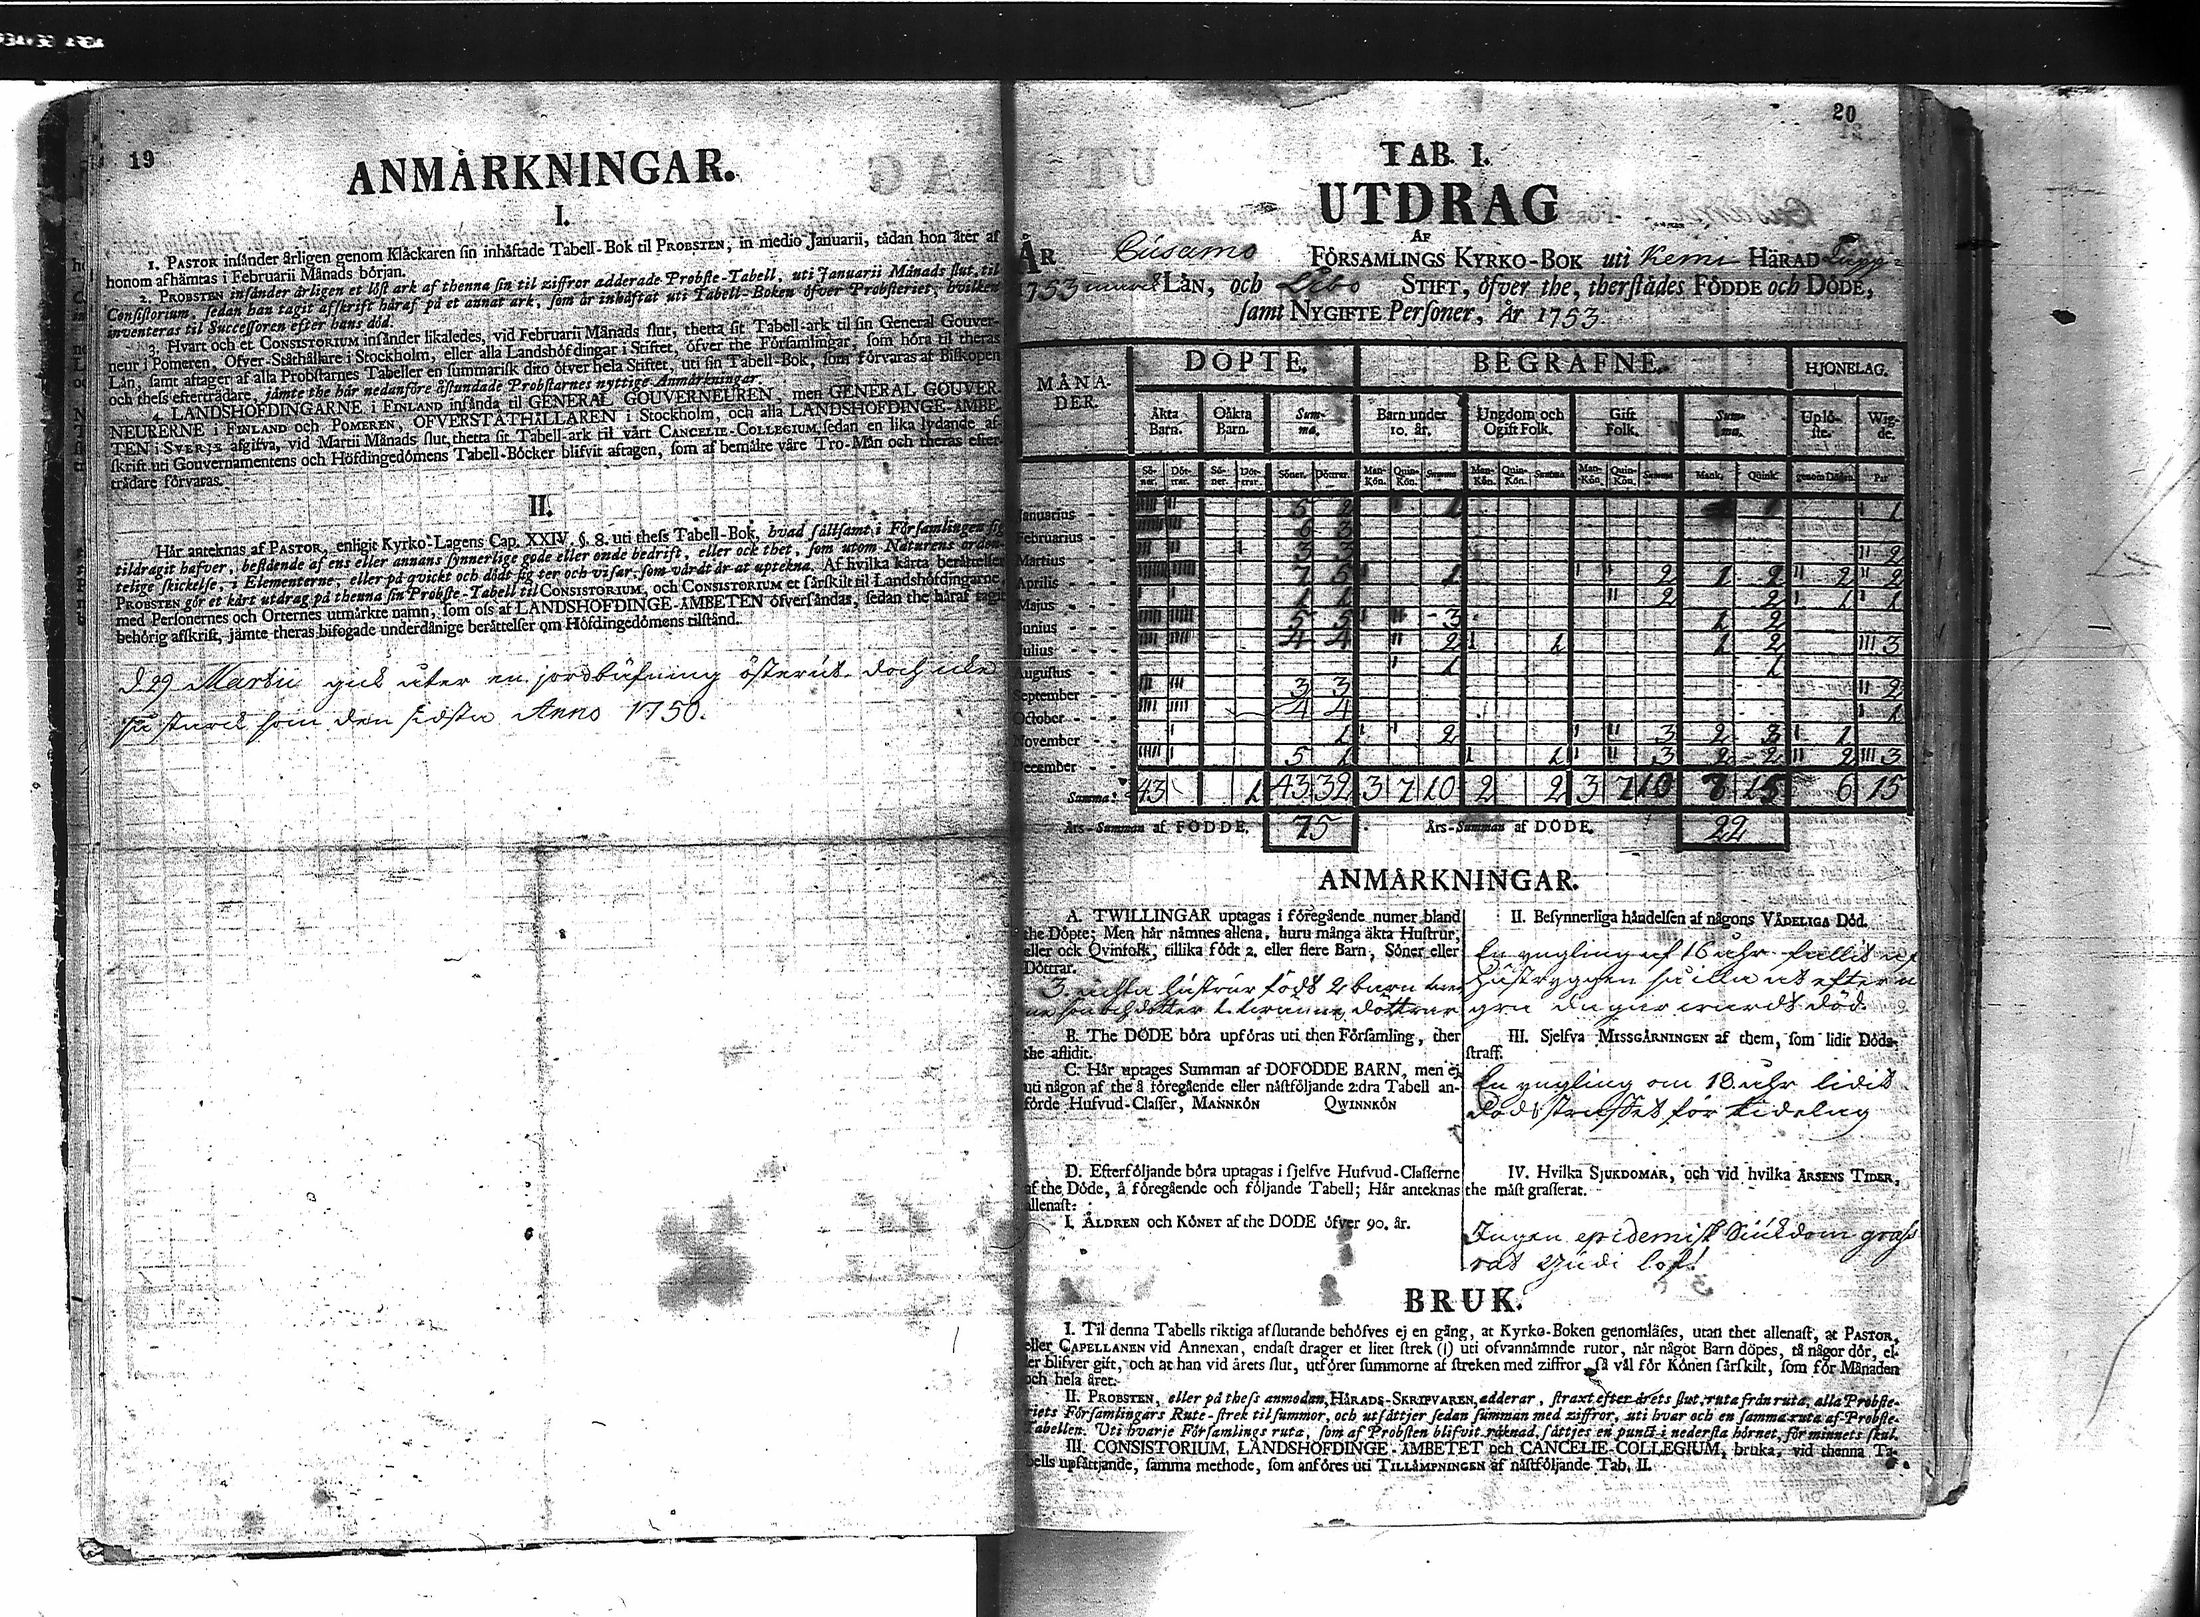 19
ANMÄRKNINGAR.
I.
1. PASTOR insånder årligen genom Klåckaren sin inhåftade Tabell-Bok til PROBSTEN, in medio Januarii, tådan hon åter af
honom afhåmtas i Februarii Månads början.
2. PROBSTEN insånder årligen et lôst ark af thenna sin til ziffror adderade Probste-Tabell, uti Januarii Månads slut, til
Consistorium, sedan han tagit affskrift håraf på et annat ark, som år inhåftat uti Tabell-Boken ôfver Probsteriet, hvilken
inventeras til Successoren efter hans dôd.
3. Hvart och et CONSISTORIUM insånder likaledes, vid Februarii Månads slut, thetta sit Tabell-ark til sin General Gouver-
neur i Pomeren, Ôfver-Ståthållare i Stockholm, eller alla Landshôfdingar i Stiftet, ôfver the Fôrsamlingar, som hôra til theras
Lån, samt aftager af alla Probstarnes Tabeller en summarisk dito ôfver hela Stiftet, uti sin Tabell-Bok, som fôrvaras af Biskopen
och thess eftertrådare, jåmte the hår nedanfôre åstundade Probstarnes nyttige Anmårkningar.
4. LANDSHÔFDINGARNE i FINLAND insånda til GENERAL GOUVERNEUREN, men GENERAL GOUVER-
NEURERNE i FINLAND och POMEREN, ÔFVERSTÅTHÅLLAREN i Stockholm, och alla LANDSHÔFDINGE-ÅMBE-
TEN i SVERJE afgifva, vid Martii Månads slut, thetta sit Tabell-ark til vårt CANCELIE-COLLEGIUM, sedan en lika lydande af-
skrift uti Gouvernamentens och Hôfdingedômens Tabell-Bôcker blifvit aftagen, som af bemålte våre Tro-Mån och theras efter-
trådare fôrvaras.
II.
Hår anteknas af PASTOR, enligit Kyrko-Lagens Cap. XXIV. §. 8. uti thess Tabell-Bok, hvad sållsamt i Fôrsamlingen sig
tildragit hafver, bestående af ens eller annans synnerlige gode eller onde bedrift, eller ock thet, som utom Naturens orden-
telige skickelse, i Elementerne, eller på qvickt och dôdt sig ter och visar, som vårdt år at uptekna. Af hvilka kårta beråttelser
PROBSTEN gôr et kårt utdrag på thenna sin Probste-Tabell til CONSISTORIUM, och CONSISTORIUM et sårskilt til Landshôfdingarne
med Personernes och Orternes utmårkte namn, som oss af LANDSHÔFDINGE-ÅMBETEN ôfversåndas, sedan the håraf tagit
behôrig affskrift, jåmte theras bifogade underdånige beråttelser om Hôfdingedômens tilstånd.
d. 29 Martii gick åter en jordbäfning österut. doch icke
så starck som den sidsta Anno 1750.
20
TAB. I.
UTDRAG
AF
ÅR Cusamo FÔRSAMLINGS KYRKO-BOK uti Kemi HÅRAD
1753 LÅN, och Åbo STIFT, ôfver the, therstådes FÔDDE och DÔDE,
samt NYGIFTE Personer, År 1753.
MÅNA- DÔPTE. BEGRAFNE. HJONELAG.
DER.
Åkta Oåkta Sum- Barn under Ungdom och Gift Sum- Uplô- Wig-
Barn. Barn. ma. 10. år. Ogift Folk. Folk. ma. ste. de.
Sô- Dôt- Sô- Dôt- Sôner. Dôttrer. Man- Quin- Summa Man- Quin- Summa Man- Quin- Summa Mank. Quink. genom Dôden. Par
ner. trar. ner. trar. Kôn. Kôn. Kôn. Kôn. Kôn. Kôn.
Januarius - 5 2 1 1 1
Februarius - 6 3
Martius - 3 3 2
Aprilis - 7 5 1 2 1 2 2 2
Majus - 1 1 2 2 1 1
Junius - 5 5 3 1 2
Julius - 4 4 2 1 1 2 3
Augustus - 1 1
September - 3 3 2
October - 4 4 1
November - 1 2 3 2 3 1
December - 5 1 1 3 2 2 2 3
Summa: 43 1 43 32 3 7 10 2 2 3 7 10 8 15 6 15
Års-Summan af FÔDDE. 75 Års-Summan af DÔDE. 22
ANMÅRKNINGAR.
A. TWILLINGAR uptagas i fôregående numer bland
the Dôpte; Men hår nåmnes allena, huru många åkta Hustrur,
eller ock Qvinfolk, tillika fôdt 2. eller flere Barn, Sôner eller
Dôttrar.
3 ächta hustrur födt 2 barn
son och dotter döttrar
B. The DÔDE bôra upfôras uti then Fôrsamling, ther
the aflidit.
C. Hår uptages Summan af DÔFÔDDE BARN, men ej
uti någon af the å fôregående eller nåstfôljande 2:dra Tabell an-
fôrde Hufvud-Classer, MANNKÔN QWINNKÔN
D. Efterfôljande bôra uptagas i sjelfve Hufvud-Classerne
af the Dôde, å fôregående och fôljande Tabell; Hår anteknas
allenast:
I. ÅLDREN och KÔNET af the DÔDE ôfver 90. år.
II. Besynnerliga håndelsen af någons VÅDELIGA Dôd.
En yngling af 16 åhr fallit af
Häst ryggen så illa at efter n
gra dagar wardt död.
III. Sjelfva MISSGÅRNINGEN af them, som lidit Dôds-
straff.
En yngling om 18 åhr lidit
dödsstraffet för tidelag
IV. Hvilka SJUKDOMAR, och vid hvilka ÅRSENS TIDER,
the måst grasserat.
Ingen epidemisk Siukdom grass
rat Gudi lof!
BRUK.
I. Til denna Tabells riktiga afslutande behôfves ej en gång, at Kyrko-Boken genomlåses, utan thet allenast, at PASTOR,
eller CAPELLANEN vid Annexan, endast drager et litet strek (|) uti ofvannåmnde rutor, når något Barn dôpes, tå någor dôr, el-
ler blifver gift, och at han vid årets slut, utfôrer summorne af streken med ziffror, så vål fôr Kônen sårskilt, som fôr Månaden
och hela året.
II. PROBSTEN, eller på thess anmodan, HÅRADS-SKRIFVAREN, adderar, straxt efter årets slut, ruta från ruta, alla Probste-
riets Fôrsamlingars Rute-strek til summor, och utsåttjer sedan summan med ziffror, uti hvar och en samma ruta af Probste-
Tabellen. Uti hvarje Fôrsamlings ruta, som af Probsten blifvit råknad, såttjes en punct i nedersta hôrnet, fôr minnets skul.
III. CONSISTORIUM, LANDSHÔFDINGE-ÅMBETET och CANCELIE-COLLEGIUM, bruka, vid thenna Ta-
bells upsåttjande, samma methode, som anfôres uti TILLÅMPNINGEN af nåstfôljande Tab. II.